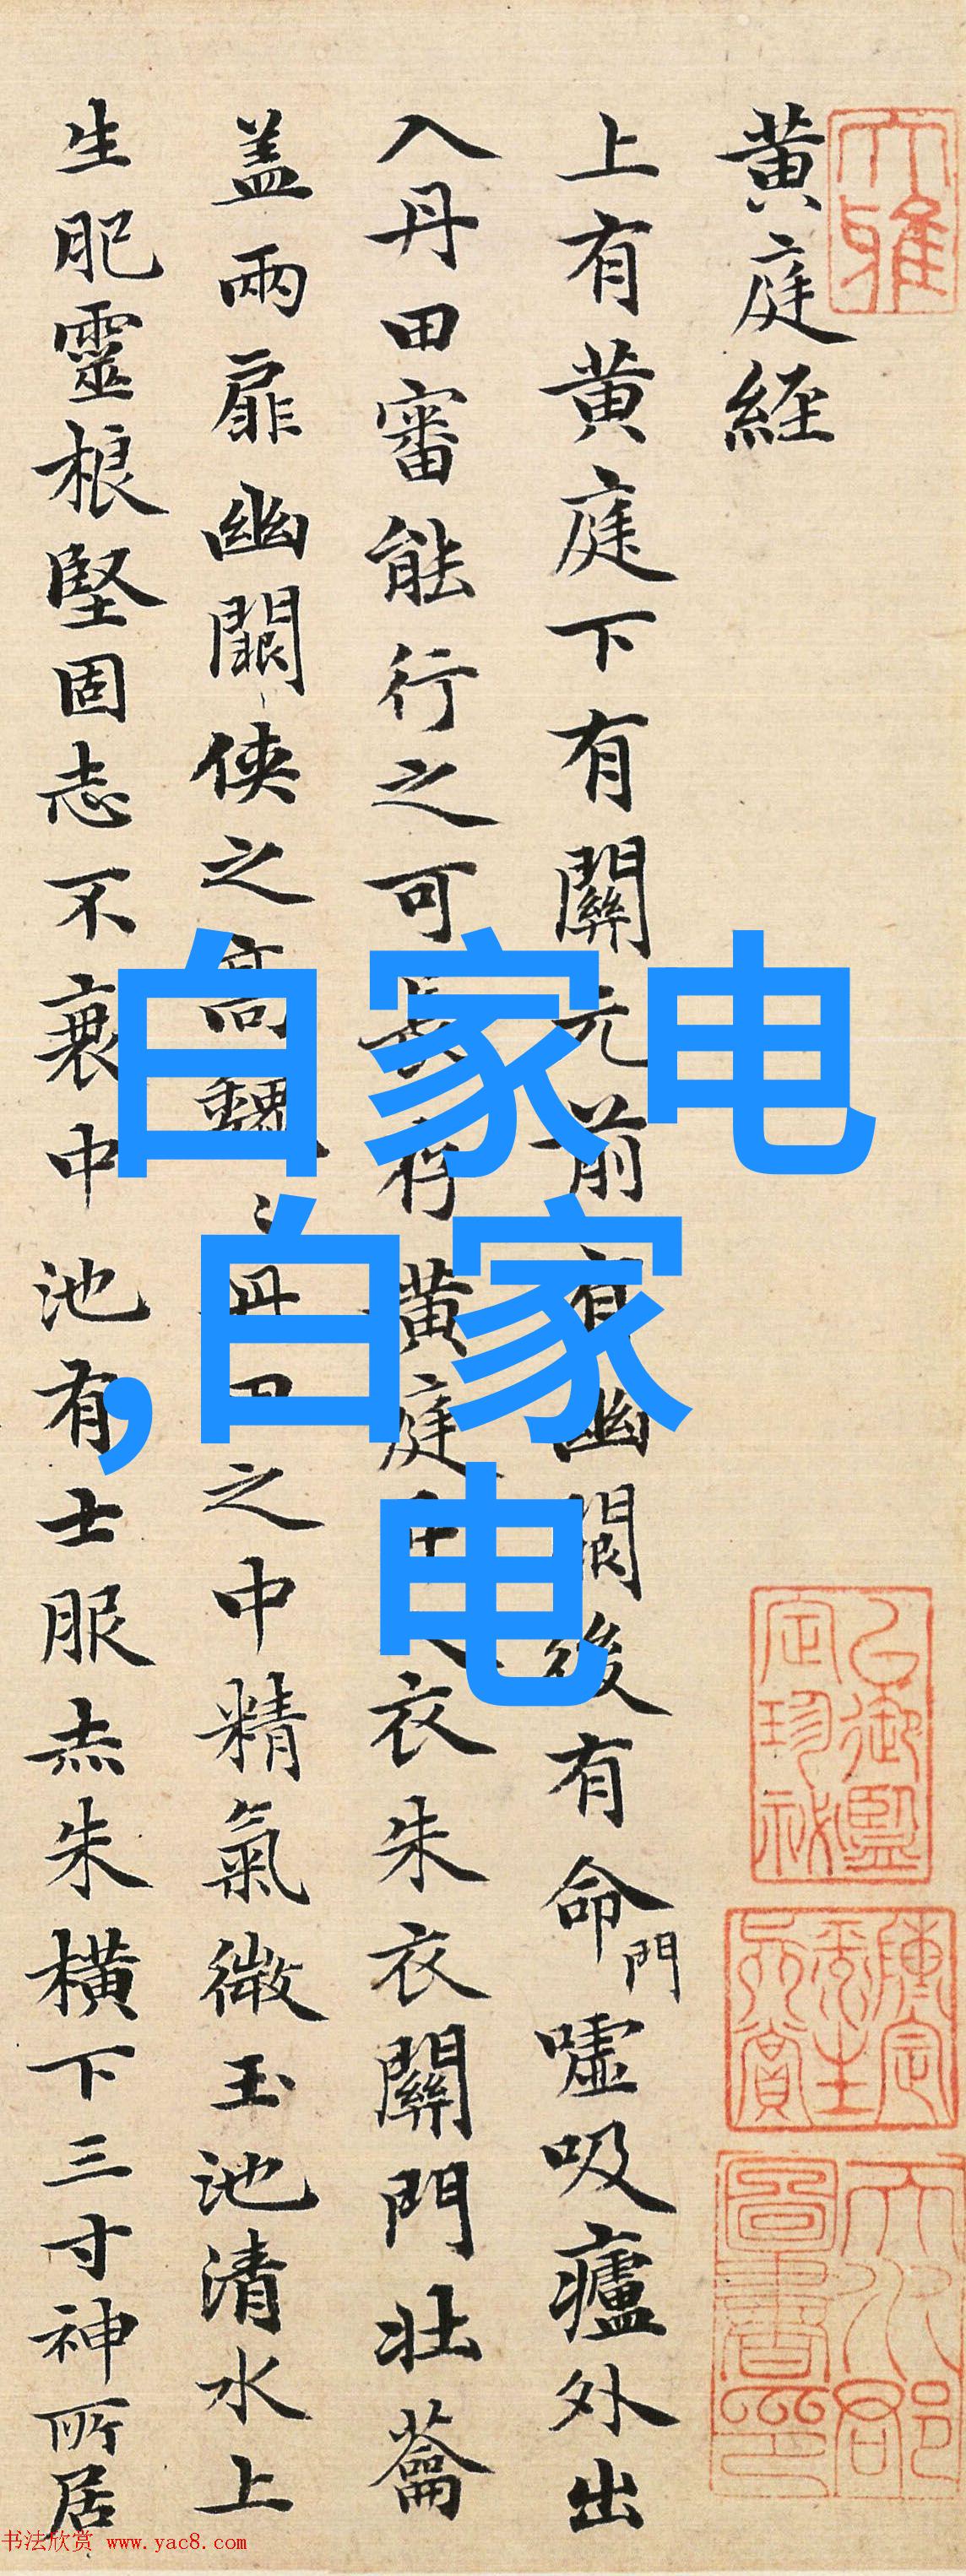 大雅
黄庭経
上有黄庭下有關元前有幽闕後有命門嘘吸廬外出
入丹田審能行之可長存黄庭中人衣朱衣關門壯蘥
盖兩扉幽闕侠之高巍丹田之中精氣微玉池清水上
生肥靈根堅固志不衰中池有士服赤朱横下三寸神所居
白家电
,白家
电
书法欣赏 www.yac8.com